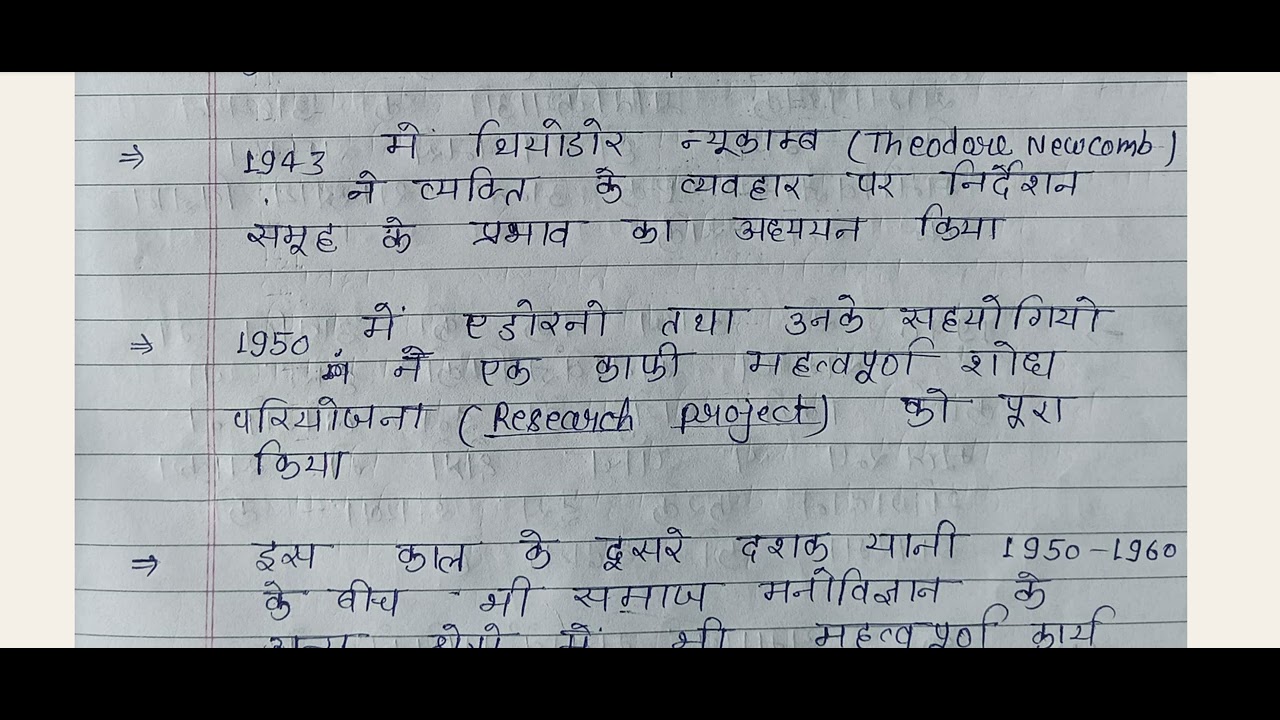 ⇒ 1943 में थियोडोर न्यूकाम्ब (Theodore Newcomb)
ने व्यक्ति के व्यवहार पर निर्देशन
समूह के प्रभाव का अध्ययन किया
⇒ 1950 में एडोरनो तथा उनके सहयोगियो
ने एक काफी महत्वपूर्ण शोध
परियोजना (Research project) को पूरा
किया
⇒ इस काल के दूसरे दशक यानी 1950-1960
के बीच भी समाज मनोविज्ञान के
में भी महत्वपूर्ण कार्य